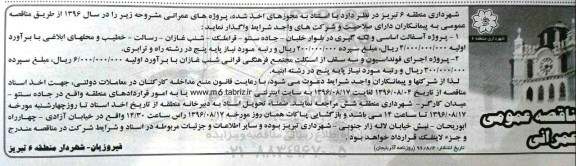 شهرداری منطقه ۶ تبریز در نظر دارد با استناد به مجوزهای اخذ شده، پروژه های عمرانی مشروحه زیر را در سال ۱۳۹۶ از طریق مناقصه
عمومی به پیمانکاران دارای صلاحیت و شرکت های واجد شرایط واگذار نماید:
۱ - پروژه آسفالت اساسی و لکه گیری در بلوار خلبان - جاده سنتو - قراملک - شنب غازان - رسالت - خطیب و محلهای ابلاغی با برآورد
اولیه ۴/۰۰۰/۰۰۰/۰۰۰ ریال، مبلغ سپرده ۲۰۰/۰۰۰/۰۰۰ ریال و رتبه مورد نیاز پایه پنج در رشته راه و ترابری.
۲ - پروژه اجرای فونداسیون و سه سقف از اسکلت مجتمع فرهنگی قرآنی شنب غازان با برآورد اولیه ۶/۰۰۰/۰۰۰/۰۰۰ ریال، مبلغ سپرده
۳۰۰/۰۰۰/۰۰۰ ریال و رتبه مورد نیاز پایه پنج در رشته ابنیه.
لذا از شرکتها و پیمانکاران واجد شرایط دعوت می شود، با رعایت قانون منع مداخله کارکنان در معاملات دولتی، جهت اخذ اسناد
مناقصه از تاریخ ۱۳۹۶/۰۸/۰۴ لغایت ۱۳۹۶/۰۸/۱۷ به سایت اینترنتی www.m6.tabriz.ir یا به امور قراردادهای منطقه واقع در جاده سنتو -
میدان کارگر - شهرداری منطقه شش مراجعه نمایند. ضمناً، تحویل اسناد به دبیرخانه منطقه از تاریخ اخذ اسناد تا روز چهارشنبه مورخه
۱۳۹۶/۰۸/۱۷ تا ساعت ۱۴ می باشد و بازگشایی پاکات همان روز مورخه ۱۳۹۶/۰۸/۱۷ راس ساعت ۱۴/۳۰ واقع در خیابان آزادی - چهارراه
ابوریحان - نبش خیابان لاله زار جنوبی - شهرداری تبریز بوده و سایر اطلاعات و جزئیات مربوطه در اسناد و شرایط شرکت در مناقصه مندرج
و جزء لاینفک قرارداد خواهد بود.
فیروزیان - شهردار منطقه ۶ تبریز
مناقصه عمومی
عمرانی